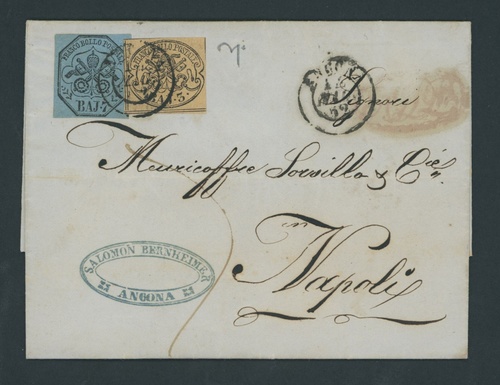 FRANCO BOLLO POSTALE
BAJ. 7
FRANCO BOLLO POSTALE
BAJ. 3
ANCONA
Signori
Meuricoffre Sorvillo & Cie.
Napoli
SALOMON BERNHEIMER
ANCONA